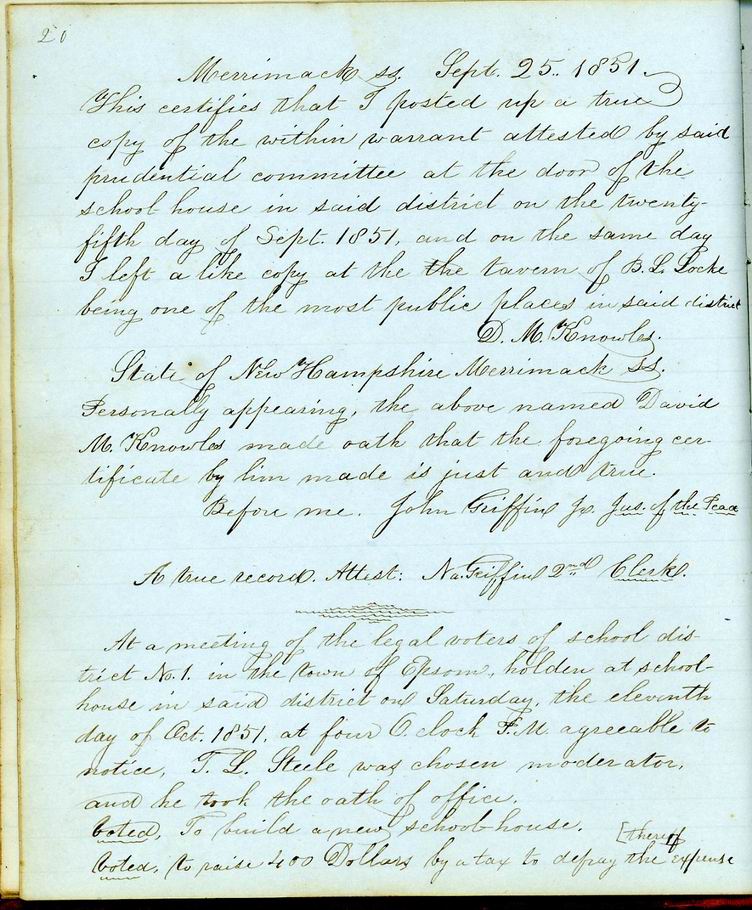 20
Merrimack ss. Sept. 25. 1851.
This certifies that I posted up a true
copy of the within warrant attested by said
prudential committee at the door of the
school house in said district on the twenty-
fifth day of Sept. 1851, and on the same day
I left a like copy at the the tavern of B. L. Locke
being one of the most public places in said district
D. M. Knowles.
State of New Hampshire Merrimack ss.
Personally appearing, the above named David
M. Knowles made oath that the foregoing cer-
tificate by him made is just and true.
Before me. John Griffin Jr. Jus. of the Peace
A true record. Attest: Na. Griffin 2nd Clerk.
At a meeting of the legal voters of school dis-
trict No. 1. in the town of Epsom, holden at school-
house in said district on Saturday, the eleventh
day of Oct. 1851, at four O.clock P.M. agreeable to
notice, T. L. Steele was chosen moderator,
and he took the oath of office.
Voted, To build a new school-house.
[thereof
Voted, to raise 400 Dollars by a tax to defray the expense